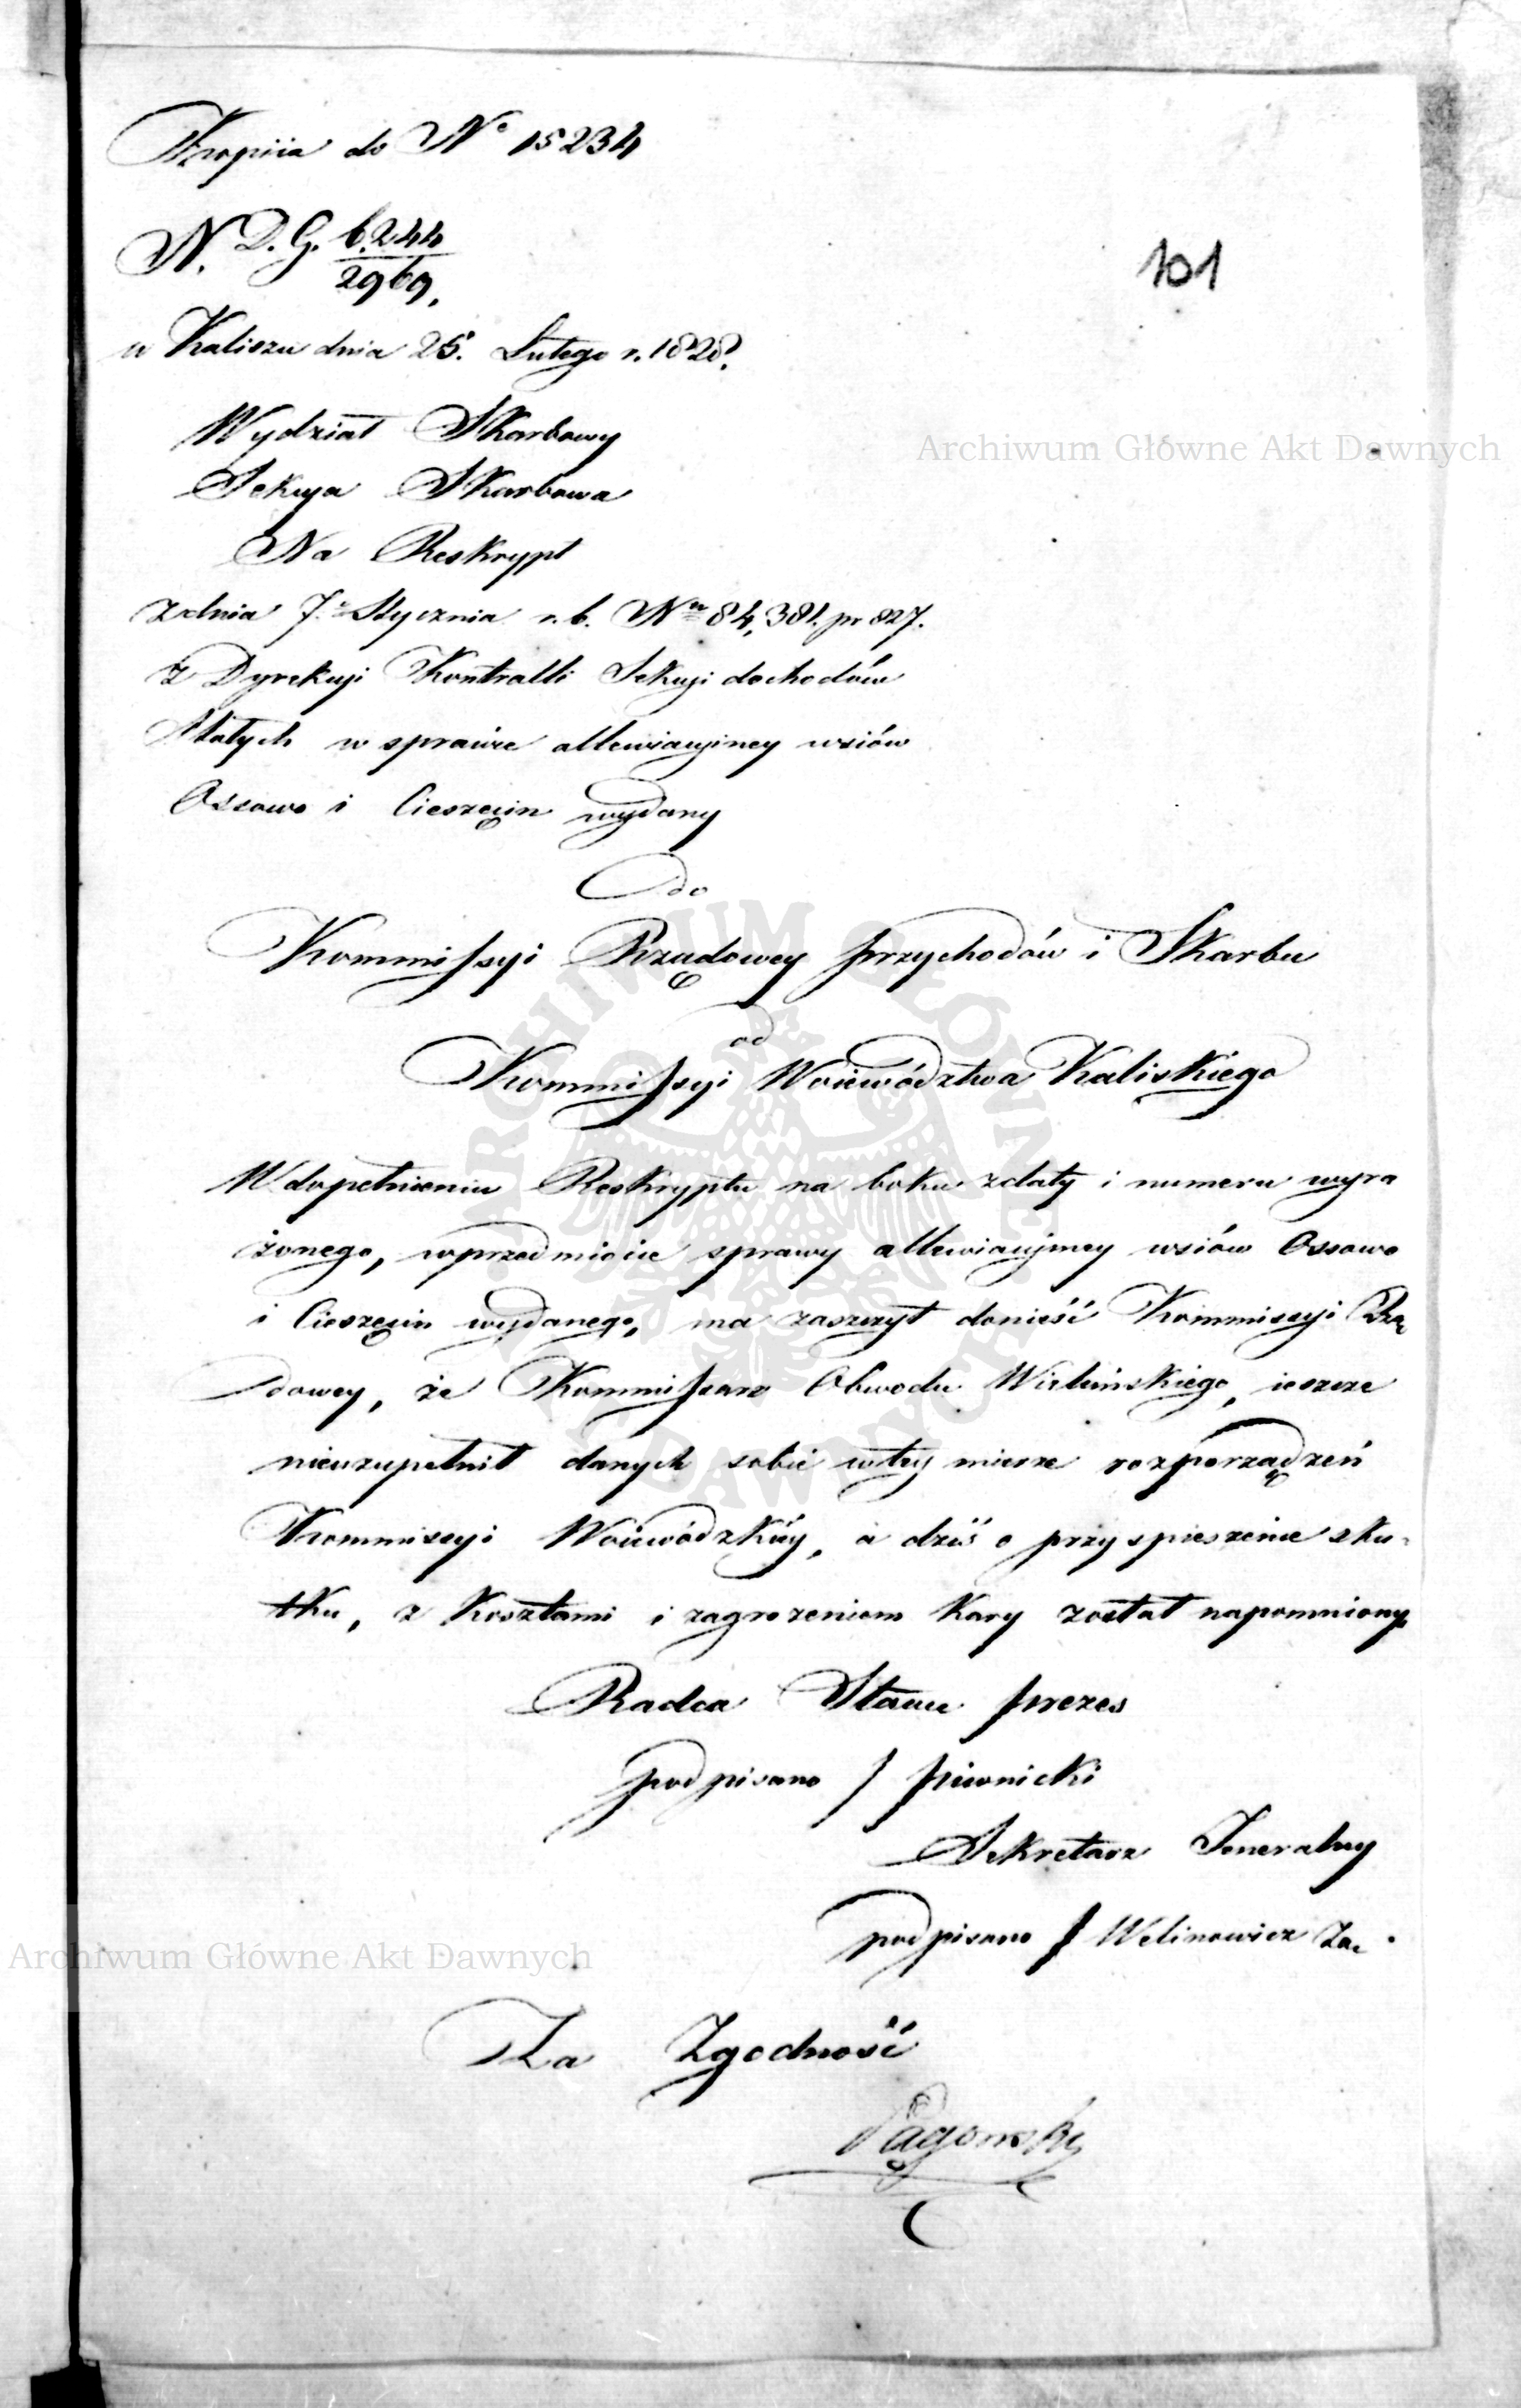 Kopiia do Nº 15234
N. D. G. 6.244
2969.
101
w Kaliszu dnia 25. Lutego r. 1828.
Wydział Skarbowy
Sekcya Skarbowa
Archiwum Główne Akt Dawnych
Na Reskrypt
z dnia 7. Stycznia r. b. Nro 84,381. pr 827.
z Dyrekcyi Kontrolli Sekcyi dochodów
Stałych w sprawie allewiacyiney wsiów
Ossowo i Cieszęcin wydany
do
Kommissyi Rządowey Przychodów i Skarbu
od
Kommissyi Woiewództwa Kaliskiego
W dopełnieniu Reskryptu na boku z daty i numeru wyra
żonego, w przedmiocie sprawy allewiacyjney wsiów Ossowo
i Cieszęcin wydanego, ma zaszczyt donieść Kommissyi Rzą
dowey, że Kommissarz Obwodu Wieluńskiego, ieszcze
nieuzupełnił danych sobie w tey mierze rozporządzeń
Kommissyi Woiewódzkiey, a dziś o przyspieszenie sku-
tku, z kosztami i zagrożeniem kary został napomniony
Radca Stanu Prezes
podpisano / Piwnicki
Sekretarz Jeneralny
podpisano / Welinowicz Za.
Archiwum Główne Akt Dawnych
Za Zgodność
ARCHIWUM GŁÓWNE AKT DAWNYCH